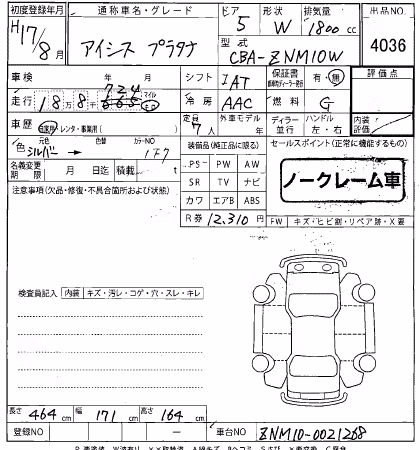 初度登録年月 通称車名・グレード ドア 形状 排気量 出品NO.
H17/8月 アイシス プラタナ 5 W 1800cc 4036
型式 CBA-ZNM10W
車検 年 月 シフト IAT 保証書 有・無 評価点
走行 18万8千 724 マイル キロ 冷房 AAC 燃料 G
車歴 自家用・レンタ・事業用( ) 定員 7人 外車モデル 年 ディーラー 並行 ハンドル 左・右 内装評価
色 元色 シルバー 色替 カラーNO 1F7 装備品(純正品に限る) セールスポイント(正常に機能するもの)
名義変更期限 月 日迄 積載 PS PW AW
SR TV ナビ ノークレーム車
注意事項(欠品・修復・不具合箇所および状態) カワ エアB ABS
R券 12,310円 FW キズ・ヒビ割・リペア跡・X要
検査員記入 内装 キズ・汚レ・コゲ・穴・スレ・キレ
長さ 464cm 幅 171cm 高さ 164cm
登録NO ー 車台NO ZNM10-0021268